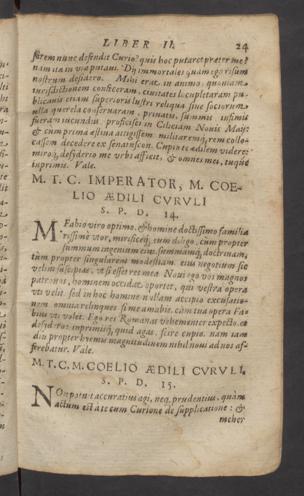 LIBER II. 24
item nunc defendit Curio? quis hoc putaret præter me?
nam ita vivam putavi. Dij immortales quàm ego risum
nostrum desidero. Mihi erat in animo, quoniam
iurisdictionem confeceram, civitates locupletaram, pu
blicanis etiam superioris lustri reliqua sine sociorum
ulla querela conservaram, privatis, summis infimis
fueram iucundus, proficisci in Ciliciam Nonis Maij:
& cum prima æstiva attigissem militaremq; rem collo-
cassem decedere ex senatusconf. Cupio te ædilem videre:
miroq; desiderio me urbs afficit, & omnes mei, tuque
inprimis. Vale.
M. T. C. IMPERATOR, M. COE-
LIO ÆDILI CVRVLI
S. P. D. 14.
M Fabio viro optimo, & homine doctissimo familia
rissimè utor, mirificeq; eum diligo, cum propter
summum ingenium eius, summamq; doctrinam,
tum propter singularem modestiam. eius negotium sic
velim suscipias, ut si esset res mea. Novi ego vos magnos
patronos, hominem occidat oportet, qui vestra opera
uti velit. sed in hoc homine nullam accipio excusatio-
nem. omnia relinques si me amabis, cùm tua opera Fa-
bius uti volet. Ego res Romanas vehementer expecto, &
desidero: inprimisq; quid agas, scire cupio. nam iam
diu propter hyemis magnitudinem nihil novi ad nos af-
ferebatur. Vale.
M. T. C. M. COELIO ÆDILI CVRVLI,
S. P. D. 15.
NOn potuit accuratius agi, neq; prudentius, quàm
actum est à te cum Curione de supplicatione: &
meher